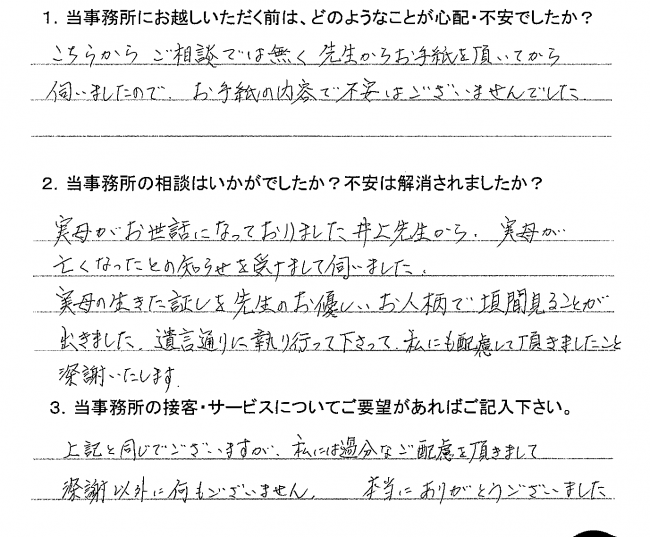 1．当事務所にお越しいただく前は、どのようなことが心配・不安でしたか？
こちらから ご相談では無く 先生からお手紙を頂いてから
伺いましたので、お手紙の内容で不安はございませんでした。
2．当事務所の相談はいかがでしたか？不安は解消されましたか？
実母がお世話になっておりました井上先生から、実母が
亡くなったとの知らせを受けまして伺いました。
実母の生きた証しを先生のお優しいお人柄で垣間見ることが
出きました。遺言通りに執り行って下さって、私にも配慮して頂きましたこと
深謝いたします。
3．当事務所の接客・サービスについてご要望があればご記入下さい。
上記と同じでございますが、私には過分なご配慮を頂きまして
深謝以外に何もございません。 本当にありがとうございました